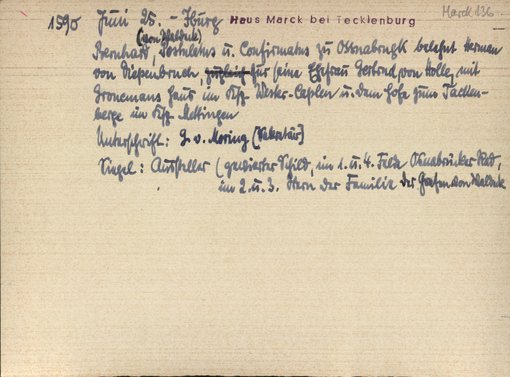 Marck 136
1590 Juni 25. - Iburg Haus Marck bei Tecklenburg
(von Waldeck)
Bernhard, Postulatus u. Confirmatus zu Ossnabrugk belehnt Herman
von Diepenbruch, zugleich für seine Ehefrau Gertrud von Holle, mit
Gronemans Haus im Ksp. Wester-Caplen u. dem Hofe zum Tacken-
berge im Ksp. Mettingen
Unterschrift: G. v. Moring (Sekretär)
Siegel: Aussteller (quadrierter Schild, im 1. u. 4. Felde Osnabrücker Rad,
im 2. u. 3. Stern der Familie der Grafen von Waldeck